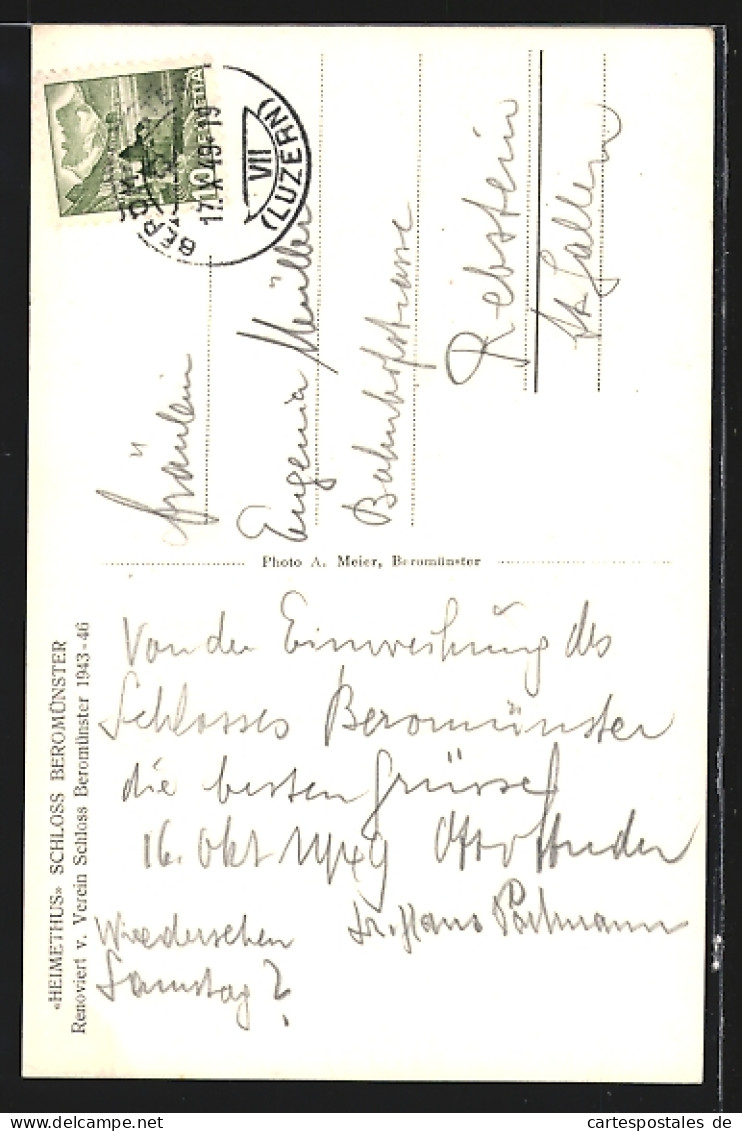 BEROM
17.X.49-19
VII
(LUZERN)
HELVETIA
10
Fräulein
Eugenia Müller
Bahnhofstrasse
Rebstein
St. Gallen
Photo A. Meier, Beromünster
«HEIMETHUS» SCHLOSS BEROMÜNSTER
Renoviert v. Verein Schloss Beromünster 1943-46
Von der Einweihung des
Schlosses Beromünster
die besten Grüsse
16. Okt 1949 Otto Studer
Wiedersehen Dr. Hans Portmann
Samstag?
cartespostales de